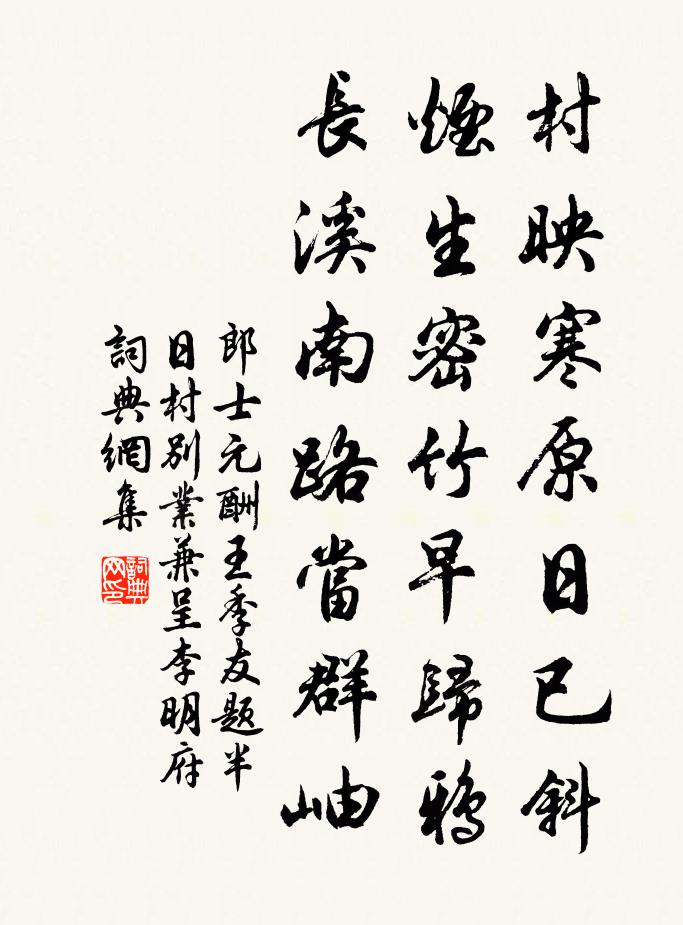 村映寒原日已斜
煙生密竹早歸鴉
長溪南路當群岫
郎士元酬王季友題半
日村別業兼呈李明府
詞典網集
詞典
网印